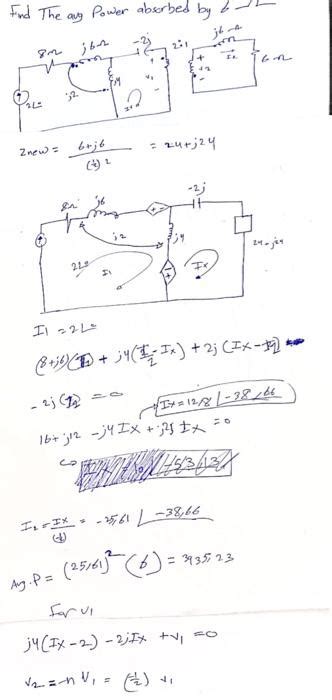 Find The avg Power absorbed by 6 -Ω
8Ω j6-Ω -2j 2:1 j6-Ω
j2 j4 V1 V2 I2 6-Ω
2L= Ix
Znew = 6+j6 / (½)2 = 24+j24
8Ω j6 -2j
j2 j4
2L= I1 Ix 24-j24
I1 = 2L=
+ j4( -Ix) + 2j (Ix-
-2j = 0
Ix = 12,8 L-38,66
16+j12 -j4Ix +j2 Ix = 0
I2 = Ix / (½) = -25,61 L-38,66
Avg.P = (25,61)2 (6) = 3935,23
For V1
j4(Ix-2) -2jIx +V1 =0
V2 = -n V1 = (-½) V1